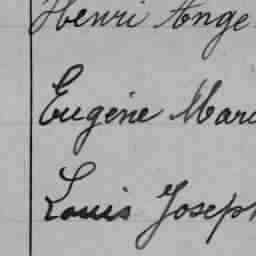 Henri Ange
Eugène Mari
Louis Joseph